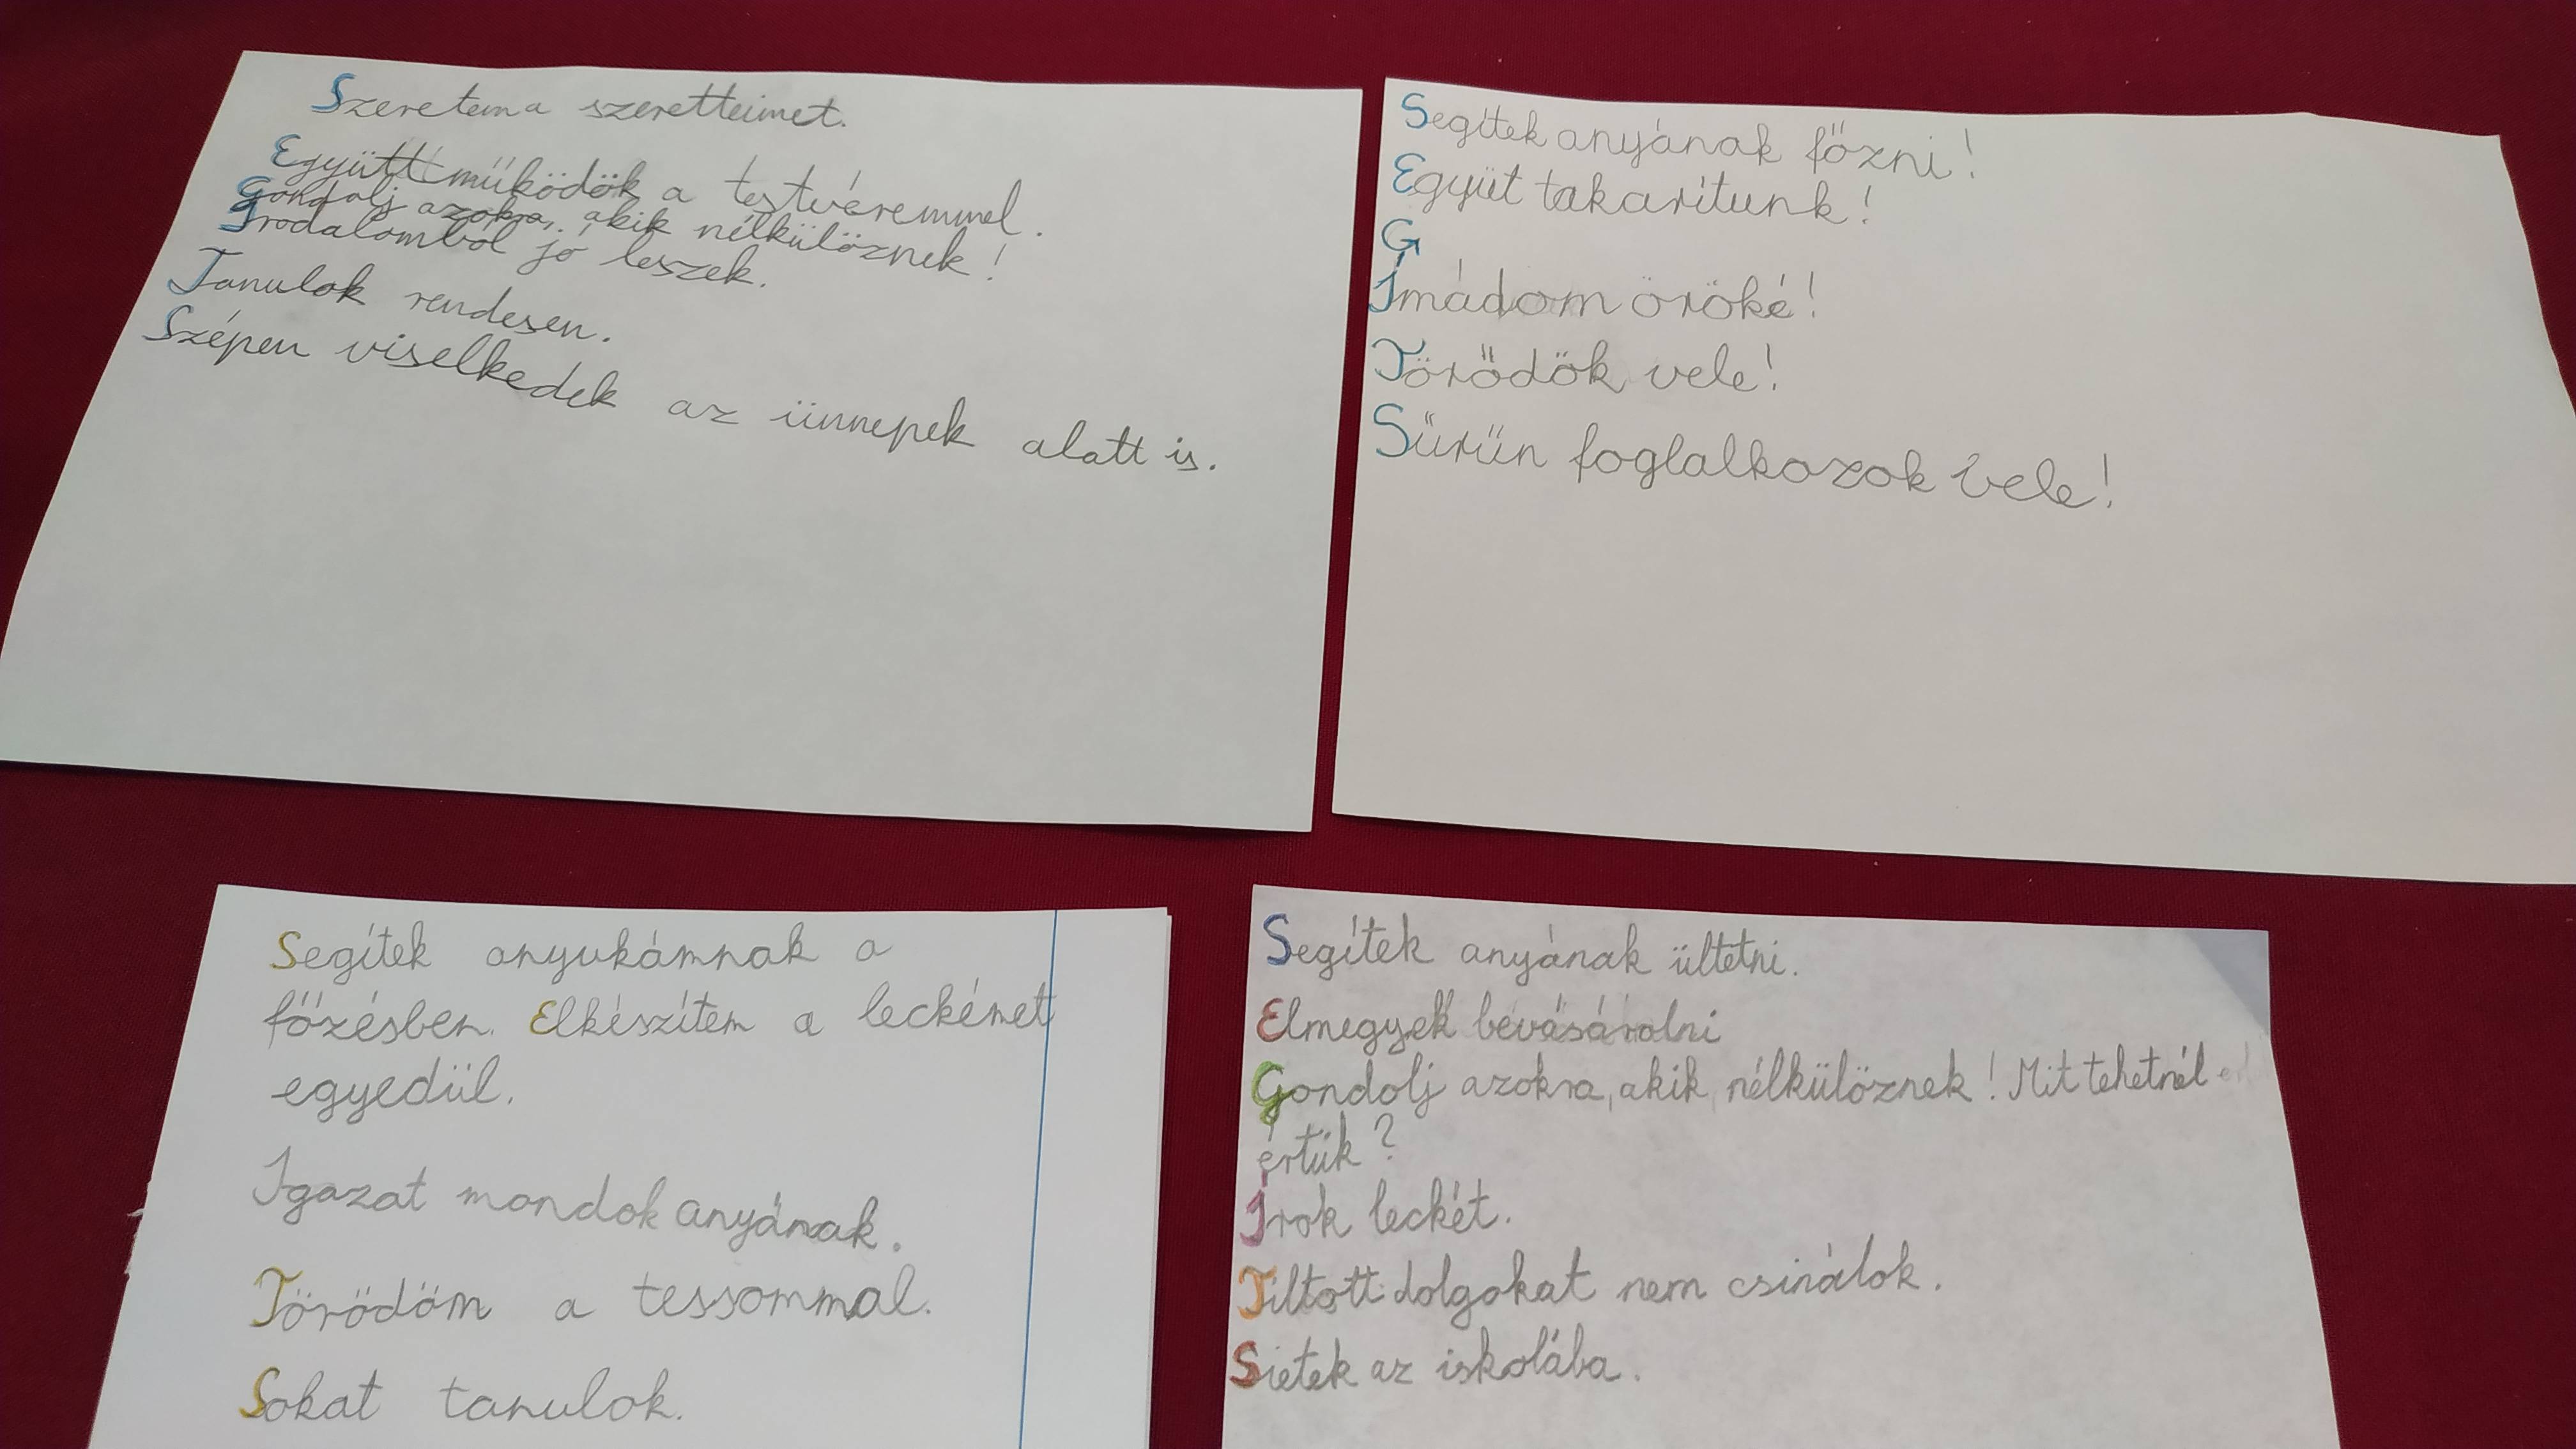 Szeretem a szeretteimet.
Együttműködök a testvéremmel.
Gondolj azokra, akik nélkülöznek!
Irodalomból jó leszek.
Tanulok rendesen.
Szépen viselkedek az ünnepek alatt is.
Segítek anyának főzni!
Együt takarítunk!
G
Imádom öröké!
Törődök vele!
Sürün foglalkozok vele!
Segítek anyukámnak a
főzésben. Elkészítem a leckémet
egyedül.
Igazat mondok anyának.
Törödöm a tessommal.
Sokat tanulok.
Segítek anyának ültetni.
Elmegyek bevásárolni
Gondolj azokra, akik nélkülöznek! Mit tehetnél
értük?
Írok leckét.
Tiltott dolgokat nem csinálok.
Sietek az iskolába.